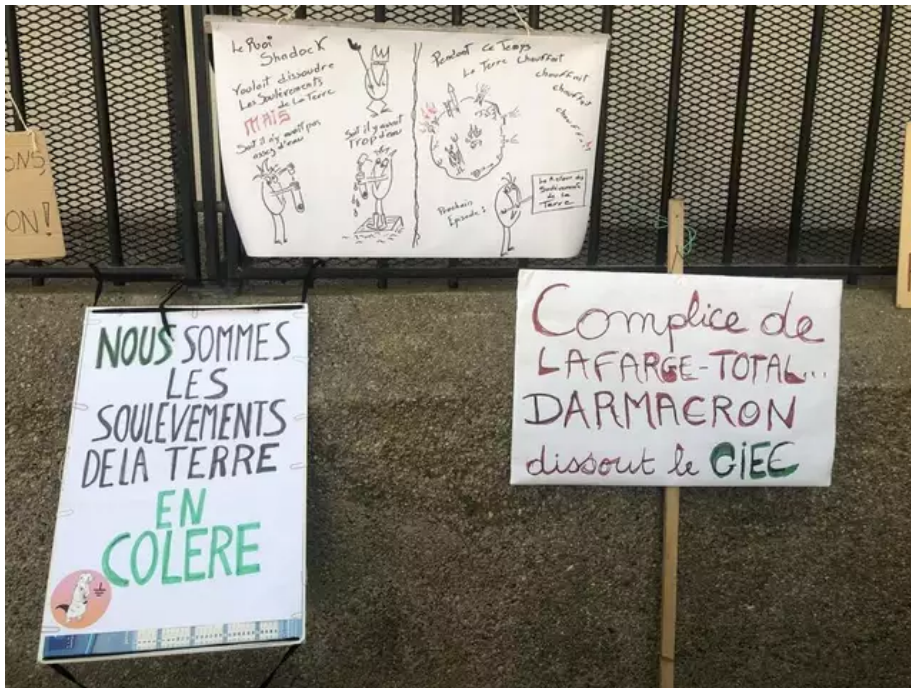 Le Rooi
Shadock
Voulait dissoudre
Les Soulèvements
de La Terre
MAIS
Soit il n'y avait pas
assez d'eau
Soit il y avait
Trop d'eau
Pendant ce Temps
La Terre chauffait
chauffait
chauffait
Prochain
Episode :
Le Retour des
Soulèvements
de la
Terre
ONS
ON!
NOUS SOMMES
LES
SOULEVEMENTS
DE LA TERRE
EN
COLERE
Complice de
LAFARGE-TOTAL...
DARMACRON
dissout le GIEC